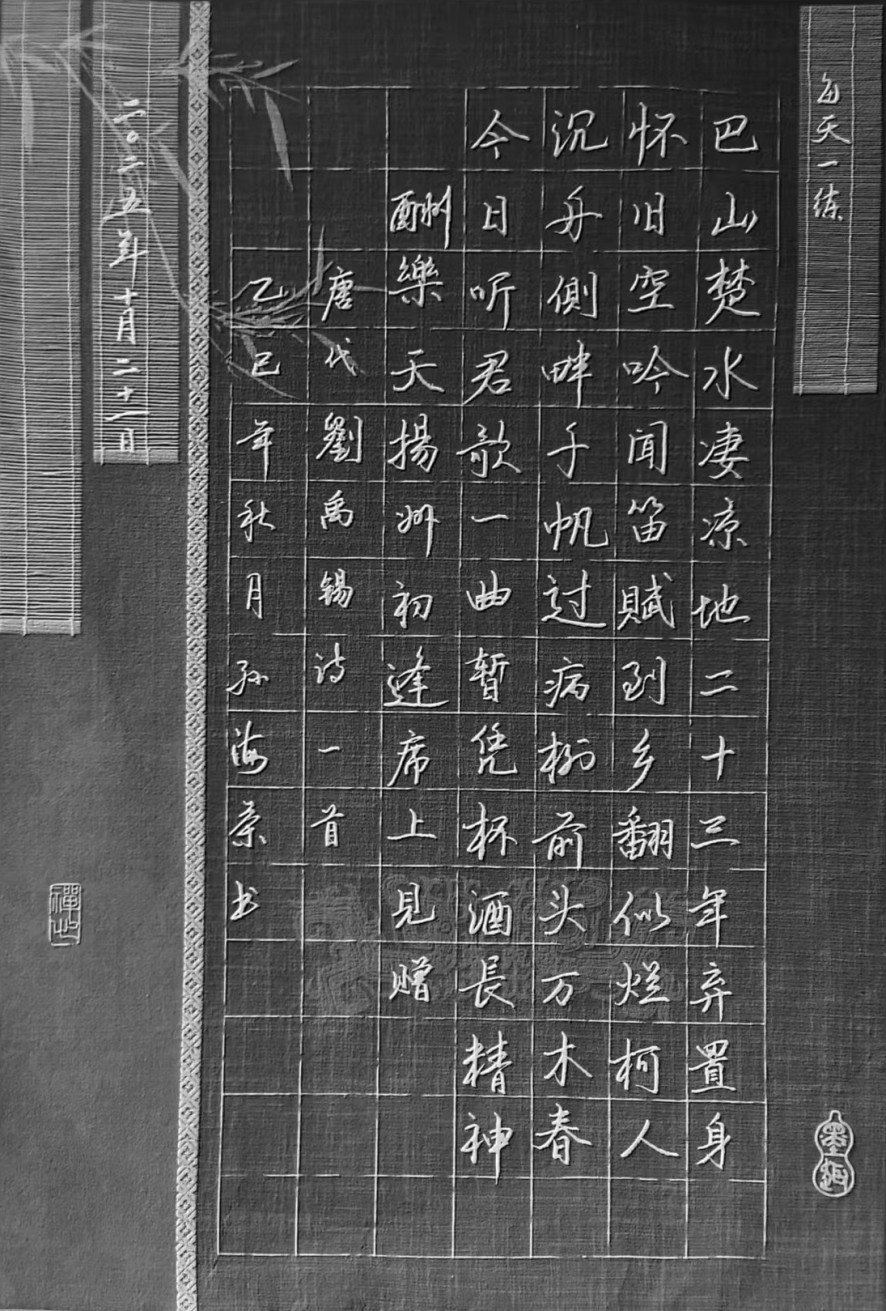 每天一练
巴山楚水凄凉地二十三年弃置身
怀旧空吟闻笛賦到乡翻似烂柯人
沉舟側畔千帆过病树前头万木春
今日听君歌一曲暂凭杯酒長精神
酬樂天揚州初逢席上見赠
唐代劉禹锡诗一首
乙巳年秋月孙海荣书
二〇二五年十月二十一日
禪心